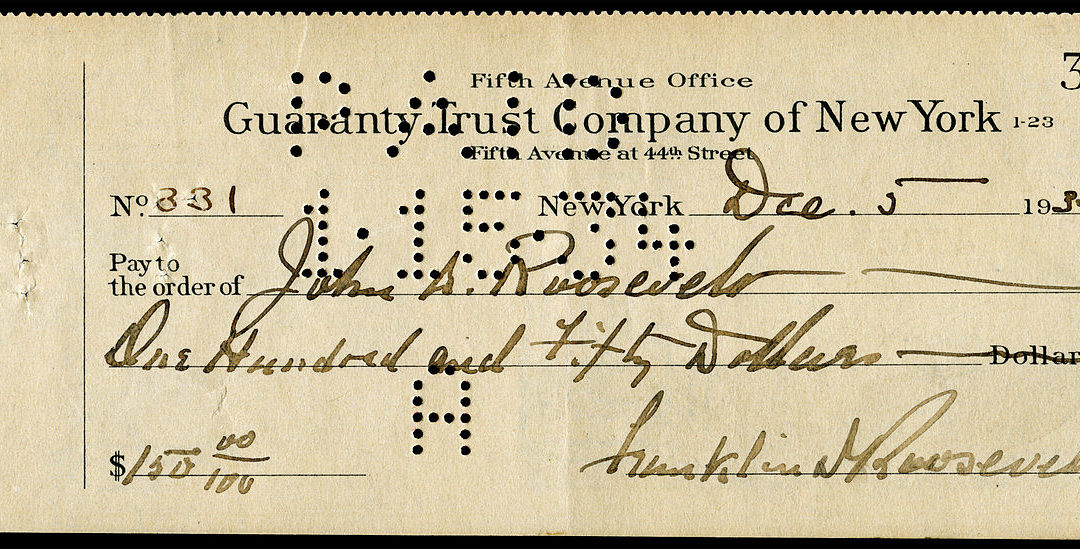 3
Fifth Avenue Office
Guaranty Trust Company of New York 1-23
Fifth Avenue at 44th Street
PAID
No. 331 New York Dec. 5 193
1.15.34
Pay to
the order of John A. Roosevelt
One Hundred and Fifty Dollars Dollar
H
$150 00/100 Franklin D Roosevel